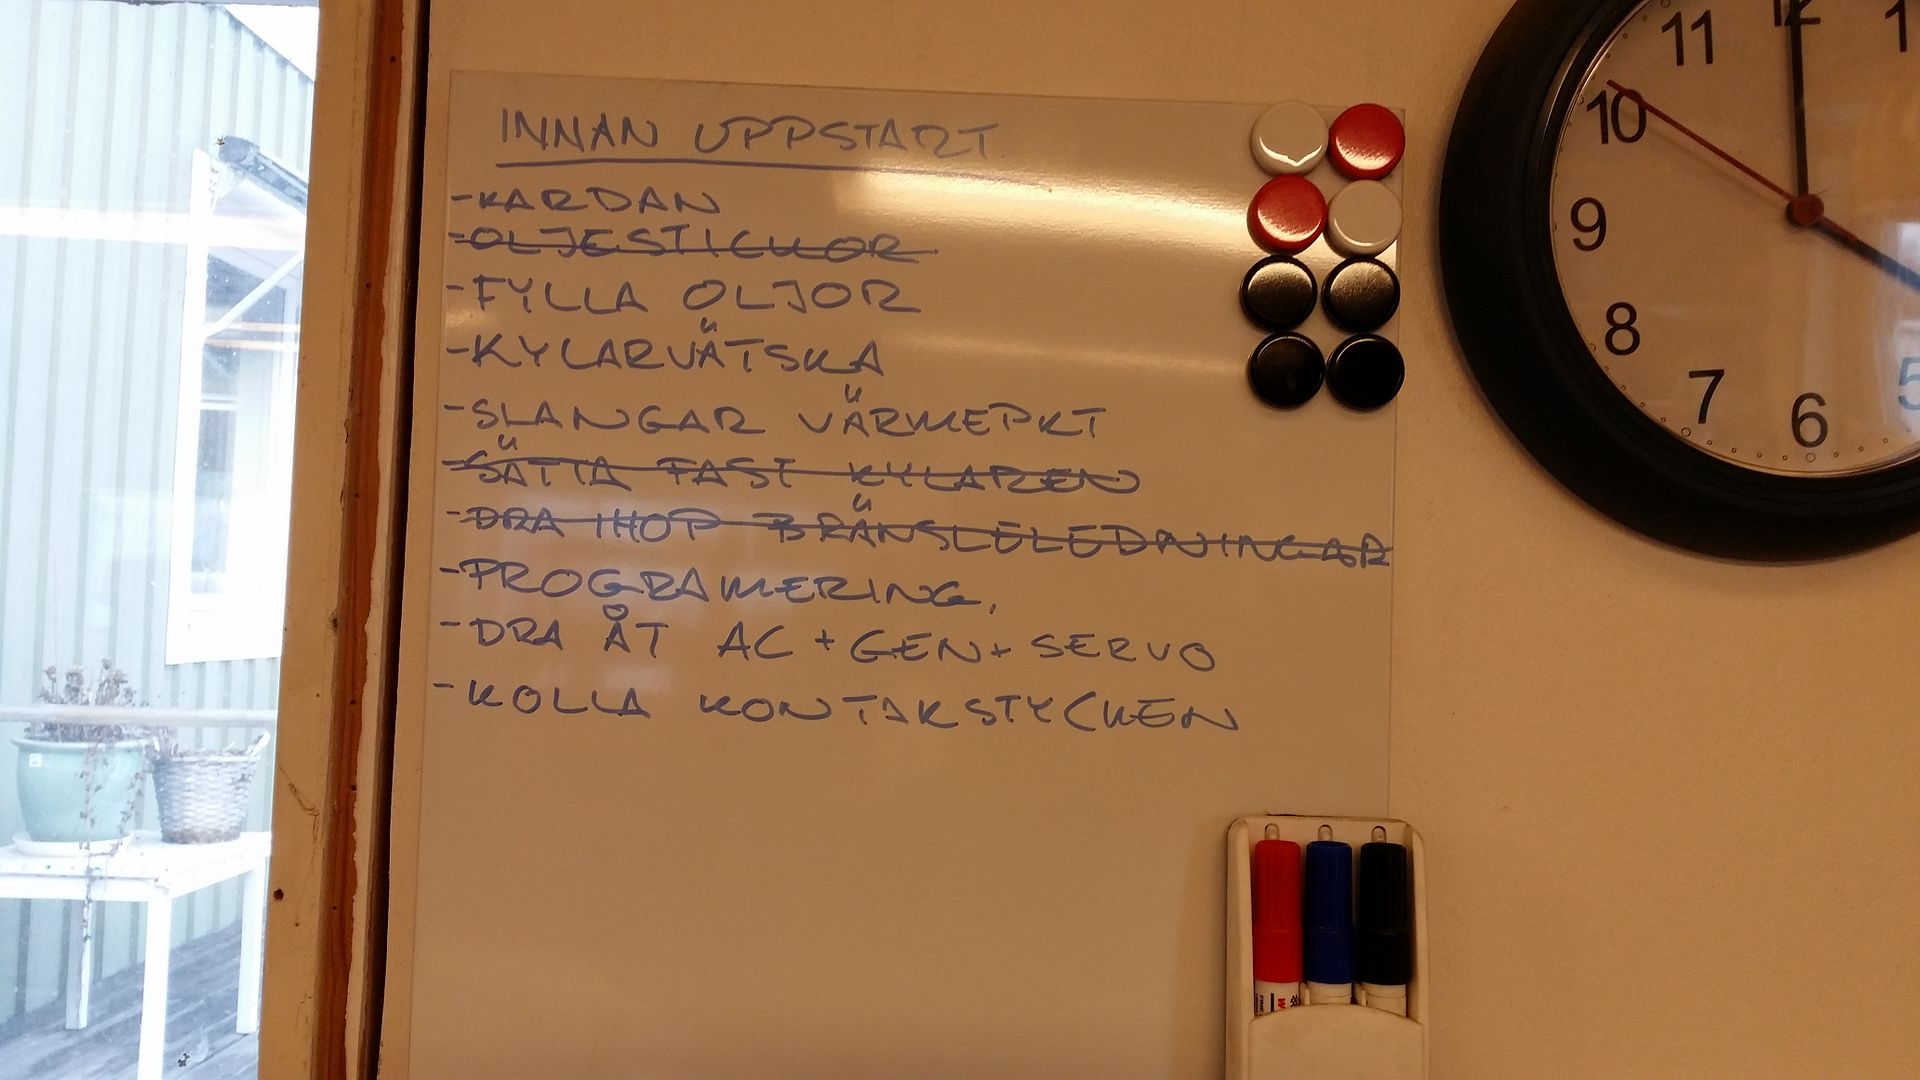 INNAN UPPSTART
-KARDAN
-OLJESTICKOR
-FYLLA OLJOR
-KYLARVÄTSKA
-SLANGAR VÄRMEPKT
-SÄTTA FAST KYLAREN
-DRA IHOP BRÄNSLELEDNINGAR
-PROGRAMERING.
-DRA ÅT AC+GEN+SERVO
-KOLLA KONTAKSTYCKEN
11
12
1
10
9
8
7
6
5